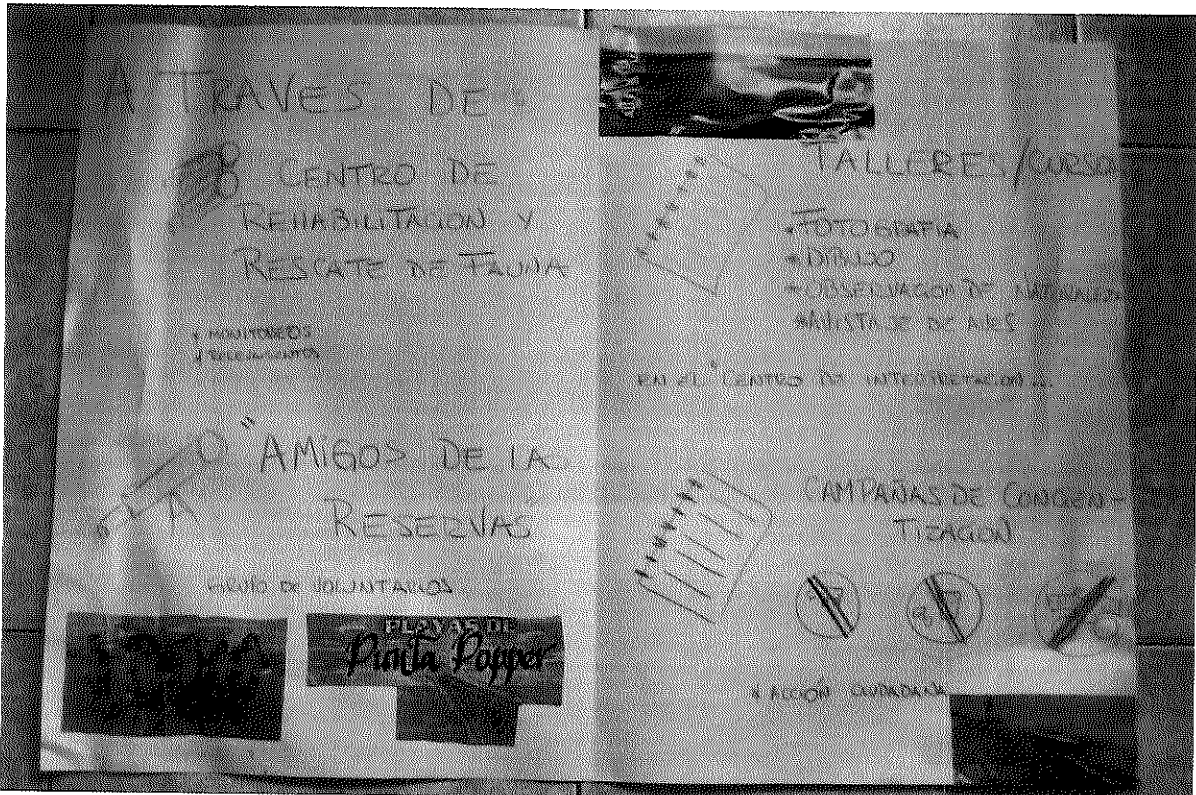 A TRAVES DE:
CENTRO DE
REHABILITACION Y
RESCATE DE FAUNA
* MONITOREOS
"AMIGOS DE LA
RESERVAS
GRUPO DE VOLUNTARIOS
PLAYAS DE
Punta Popper
TALLERES/CURSO
* FOTOGRAFIA
* DIBUJO
* OBSERVACION DE NATURALEZA
* AVISTAJE DE AVES
EN EL "CENTRO DE INTERPRETACION"
CAMPAÑAS DE CONCIEN-
TIZACION
* ACCIÓN CIUDADANA